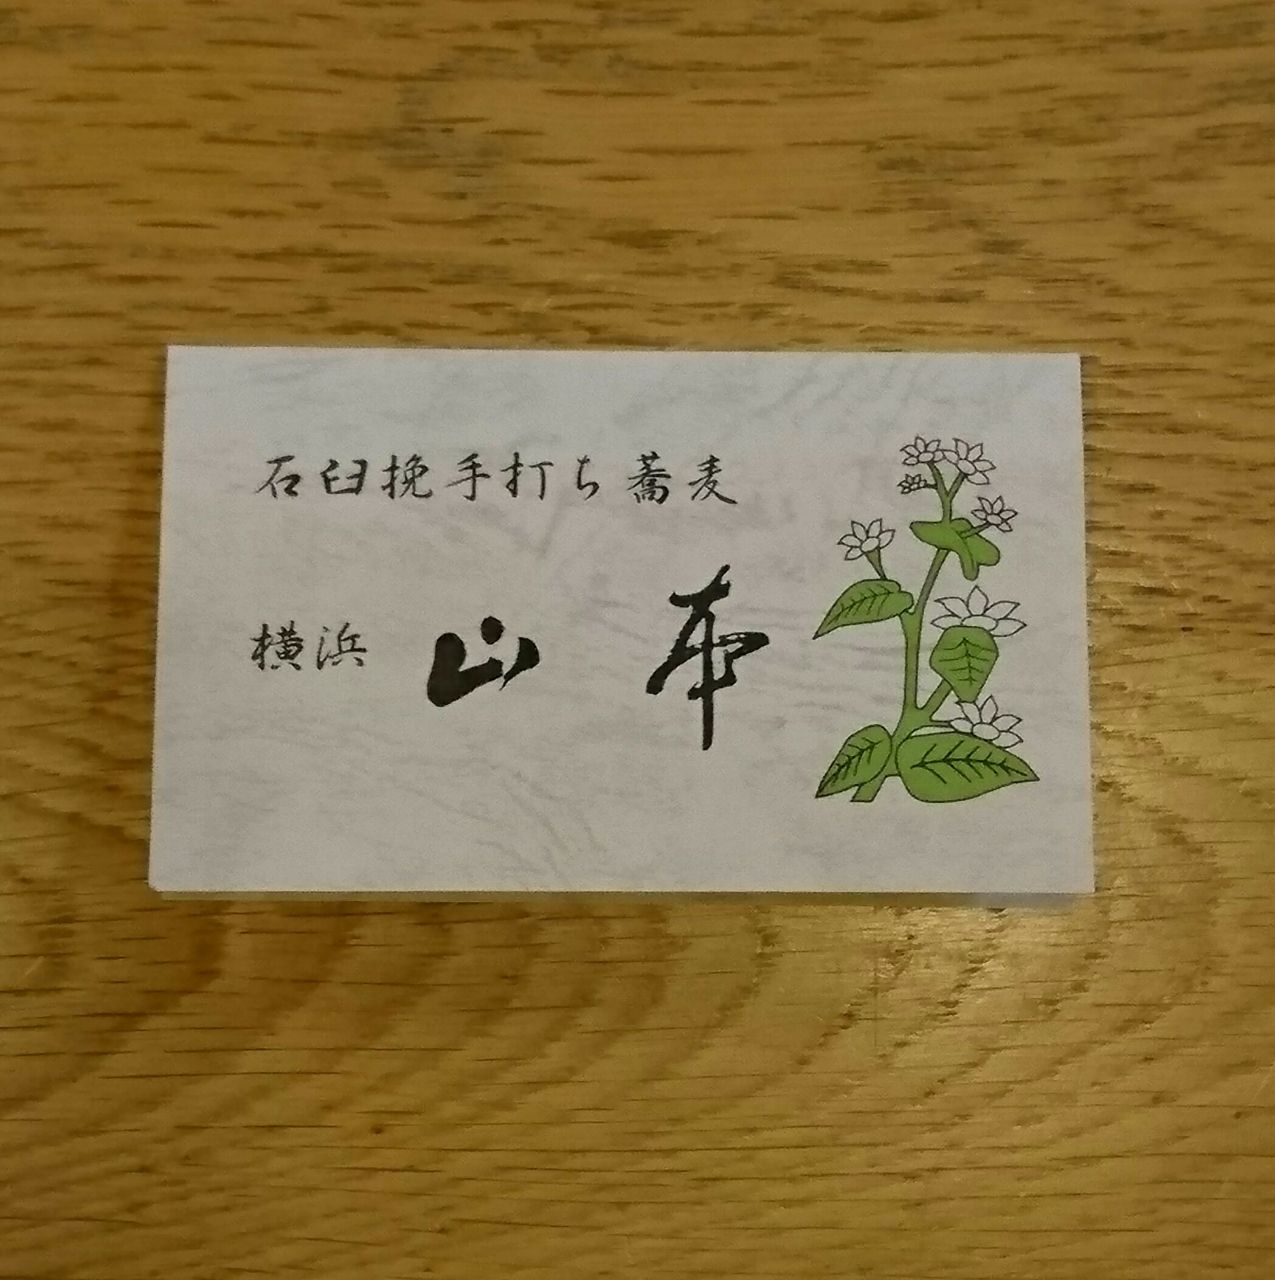 石臼挽手打ち蕎麦
横浜 山本